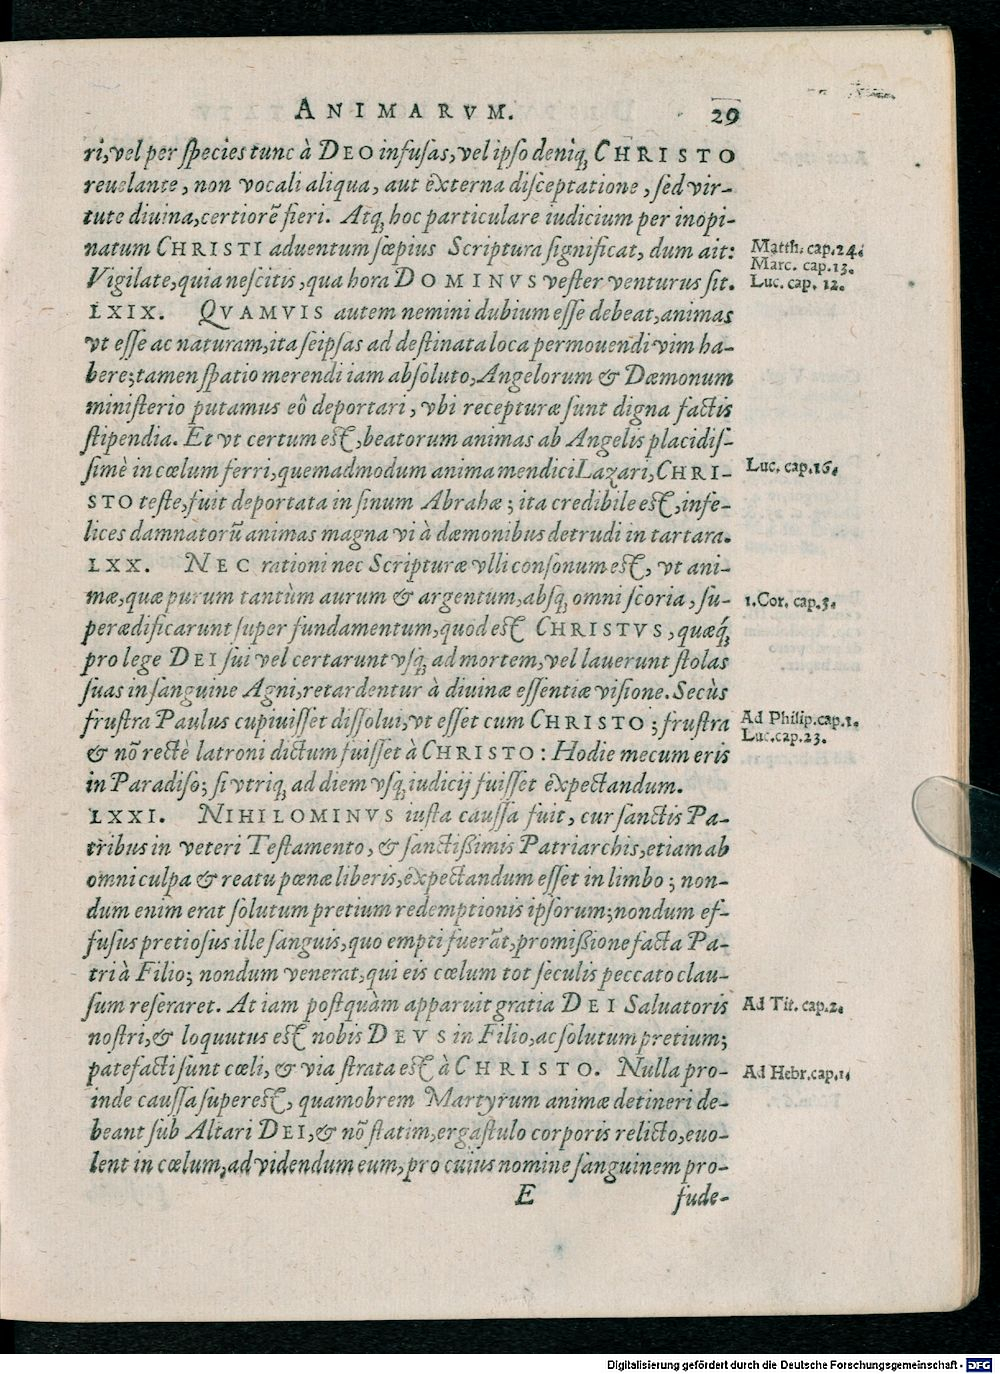 ANIMARVM. 29
ri, vel per species tunc à DEO infusas, vel ipso deniq; CHRISTO
reuelante, non vocali aliqua, aut externa disceptatione, sed vir-
tute diuina, certiorẽ fieri. Atq; hoc particulare iudicium per inopi-
natum CHRISTI aduentum sœpius Scriptura significat, dum ait:
Matth. cap. 24.
Marc. cap. 13.
Vigilate, quia nescitis, qua hora DOMINVS vester venturus sit.
Luc. cap. 12.
LXIX. QVAMVIS autem nemini dubium esse debeat, animas
vt esse ac naturam, ita seipsas ad destinata loca permouendi vim ha-
bere; tamen spatio merendi iam absoluto, Angelorum & Dæmonum
ministerio putamus eô deportari, vbi recepturæ sunt digna factis
stipendia. Et vt certum est, beatorum animas ab Angelis placidis-
simè in cœlum ferri, quemadmodum anima mendici Lazari, CHRI-
Luc. cap. 16.
STO teste, fuit deportata in sinum Abrahæ; ita credibile est, infe-
lices damnatorũ animas magna vi à dæmonibus detrudi in tartara.
LXX. NEC rationi nec Scripturæ vlli consonum est, vt ani-
mæ, quæ purum tantùm aurum & argentum, absq; omni scoria, su-
1. Cor. cap. 3.
perædificarunt super fundamentum, quod est CHRISTVS, quæq́;
pro lege DEI sui vel certarunt vsq; ad mortem, vel lauerunt stolas
suas in sanguine Agni, retardentur à diuinæ essentiæ visione. Secùs
frustra Paulus cupiuisset dissolui, vt esset cum CHRISTO; frustra
Ad Philip. cap. 1.
Luc. cap. 23.
& nõ rectè latroni dictum fuisset à CHRISTO: Hodie mecum eris
in Paradiso; si vtriq; ad diem vsq; iudicij fuisset expectandum.
LXXI. NIHILOMINVS iusta caussa fuit, cur sanctis Pa-
tribus in veteri Testamento, & sanctißimis Patriarchis, etiam ab
omni culpa & reatu pœnæ liberis, expectandum esset in limbo; non-
dum enim erat solutum pretium redemptionis ipsorum; nondum ef-
fusus pretiosus ille sanguis, quo empti fuerãt, promißione facta Pa-
tri à Filio; nondum venerat, qui eis cœlum tot seculis peccato clau-
sum reseraret. At iam postquàm apparuit gratia DEI Saluatoris
Ad Tit. cap. 2.
nostri, & loquutus est nobis DEVS in Filio, ac solutum pretium;
patefacti sunt cœli, & via strata est à CHRISTO. Nulla pro-
Ad Hebr. cap. 1.
inde caussa superest, quamobrem Martyrum animæ detineri de-
beant sub Altari DEI, & nõ statim, ergastulo corporis relicto, euo-
lent in cœlum, ad videndum eum, pro cuius nomine sanguinem pro-
E fude-
Digitalisierung gefördert durch die Deutsche Forschungsgemeinschaft - DFG